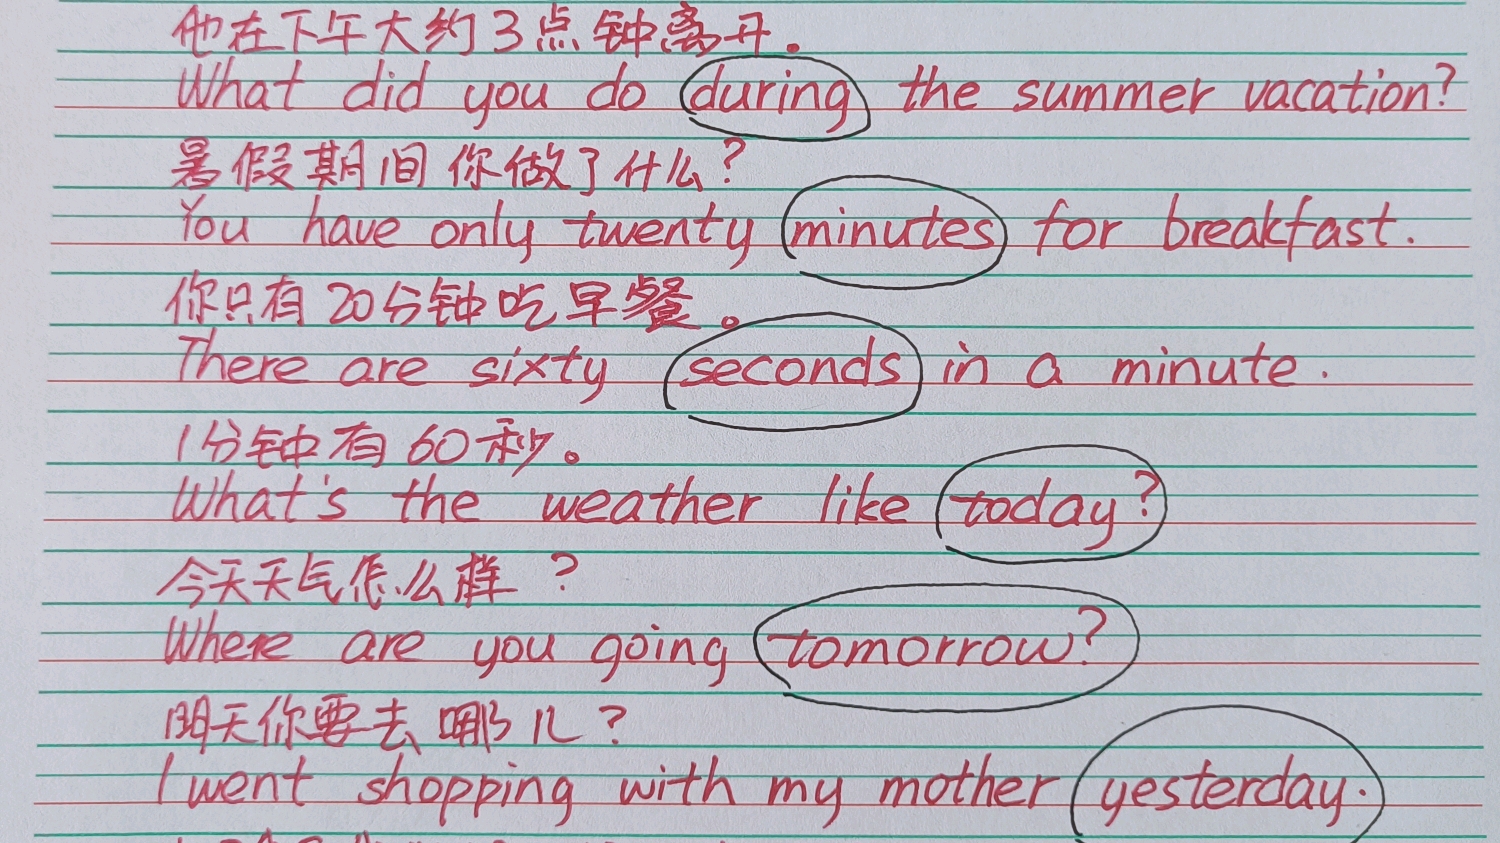 他在下午大约3点钟离开。
What did you do during the summer vacation?
暑假期间你做了什么?
You have only twenty minutes for breakfast.
你只有20分钟吃早餐。
There are sixty seconds in a minute.
1分钟有60秒。
What's the weather like today?
今天天气怎么样?
Where are you going tomorrow?
明天你要去哪儿?
I went shopping with my mother yesterday.